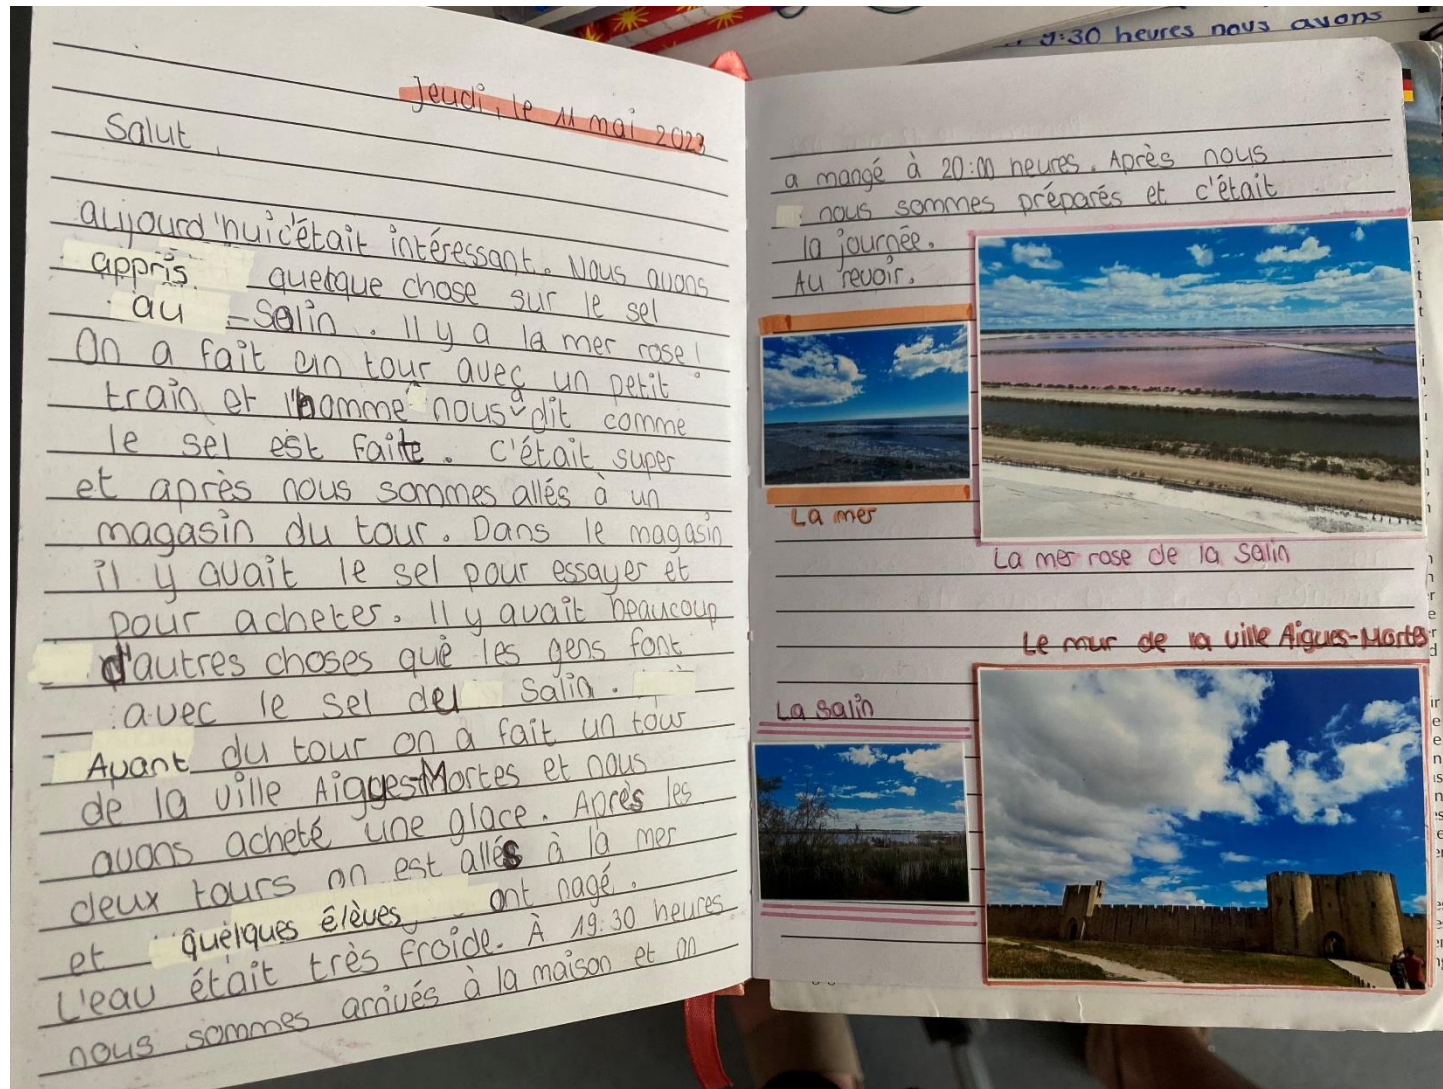 9:30 heures nous avons
Jeudi, le 11 mai 2023
Salut,
aujourd'hui c'était intéressant. Nous avons
appris quelque chose sur le sel
au Salin. Il y a la mer rose!
On a fait un tour avec un petit
train et l'homme nous a dit comme
le sel est faite. C'était super
et après nous sommes allés à un
magasin du tour. Dans le magasin
il y avait le sel pour essayer et
pour acheter. Il y avait beaucoup
d'autres choses que les gens font
avec le sel del Salin.
Avant du tour on a fait un tour
de la ville Aigues-Mortes et nous
avons acheté une glace. Après les
deux tours on est allés à la mer
et quelques élèves ont nagé.
L'eau était très froide. À 19:30 heures
nous sommes arrivés à la maison et on
a mangé à 20:00 heures. Après nous
nous sommes préparés et c'était
la journée.
Au revoir.
La mer
La mer rose de la Salin
Le mur de la ville Aigues-Mortes
La Salin